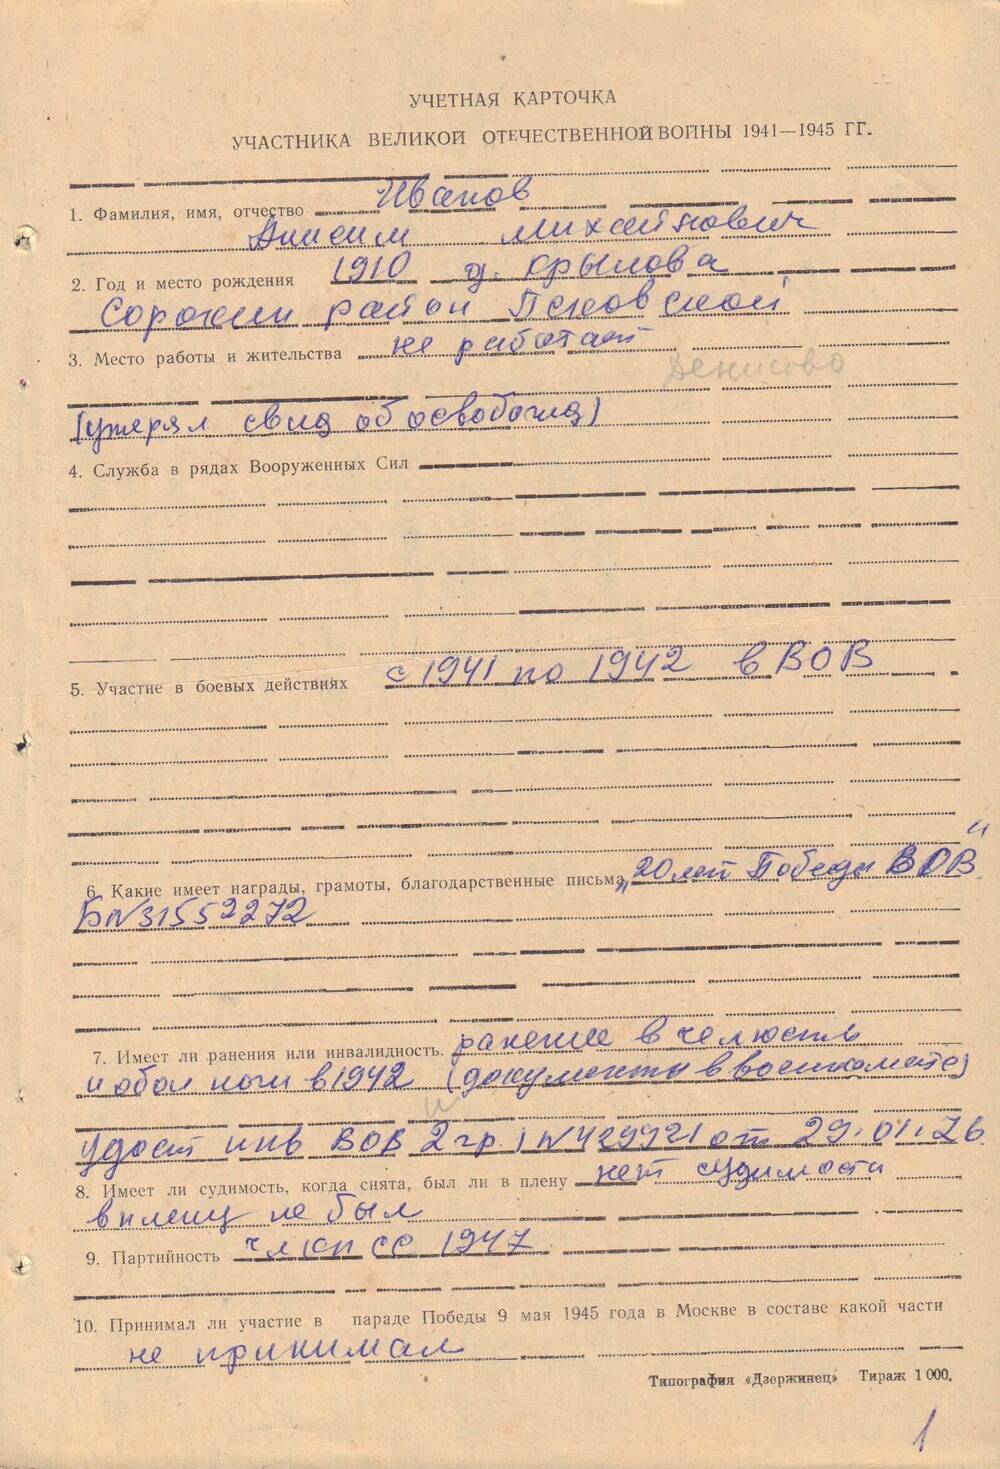 УЧЕТНАЯ КАРТОЧКА
УЧАСТНИКА ВЕЛИКОЙ ОТЕЧЕСТВЕННОЙ ВОЙНЫ 1941—1945 ГГ.
1. Фамилия, имя, отчество Иванов
Анисим Михайлович
2. Год и место рождения 1910 д. Крылова
Сорокин район Псковской
3. Место работы и жительства не работает
Денисово
(утерял свид об освобожд)
4. Служба в рядах Вооруженных Сил
5. Участие в боевых действиях с 1941 по 1942 в ВОВ
6. Какие имеет награды, грамоты, благодарственные письма „20 лет Победы ВОВ"
Б№31552272
7. Имеет ли ранения или инвалидность. ранение в челюсть
и обои ноги в 1942 (документы в военкомате)
удост инв ВОВ 2 гр.) №429921 от 29.01.76.
8. Имеет ли судимость, когда снята, был ли в плену нет судимости
в плену не был
9. Партийность чл КПСС 1947
10. Принимал ли участие в параде Победы 9 мая 1945 года в Москве в составе какой части
не принимал
Типография «Дзержинец» Тираж 1 000.
1